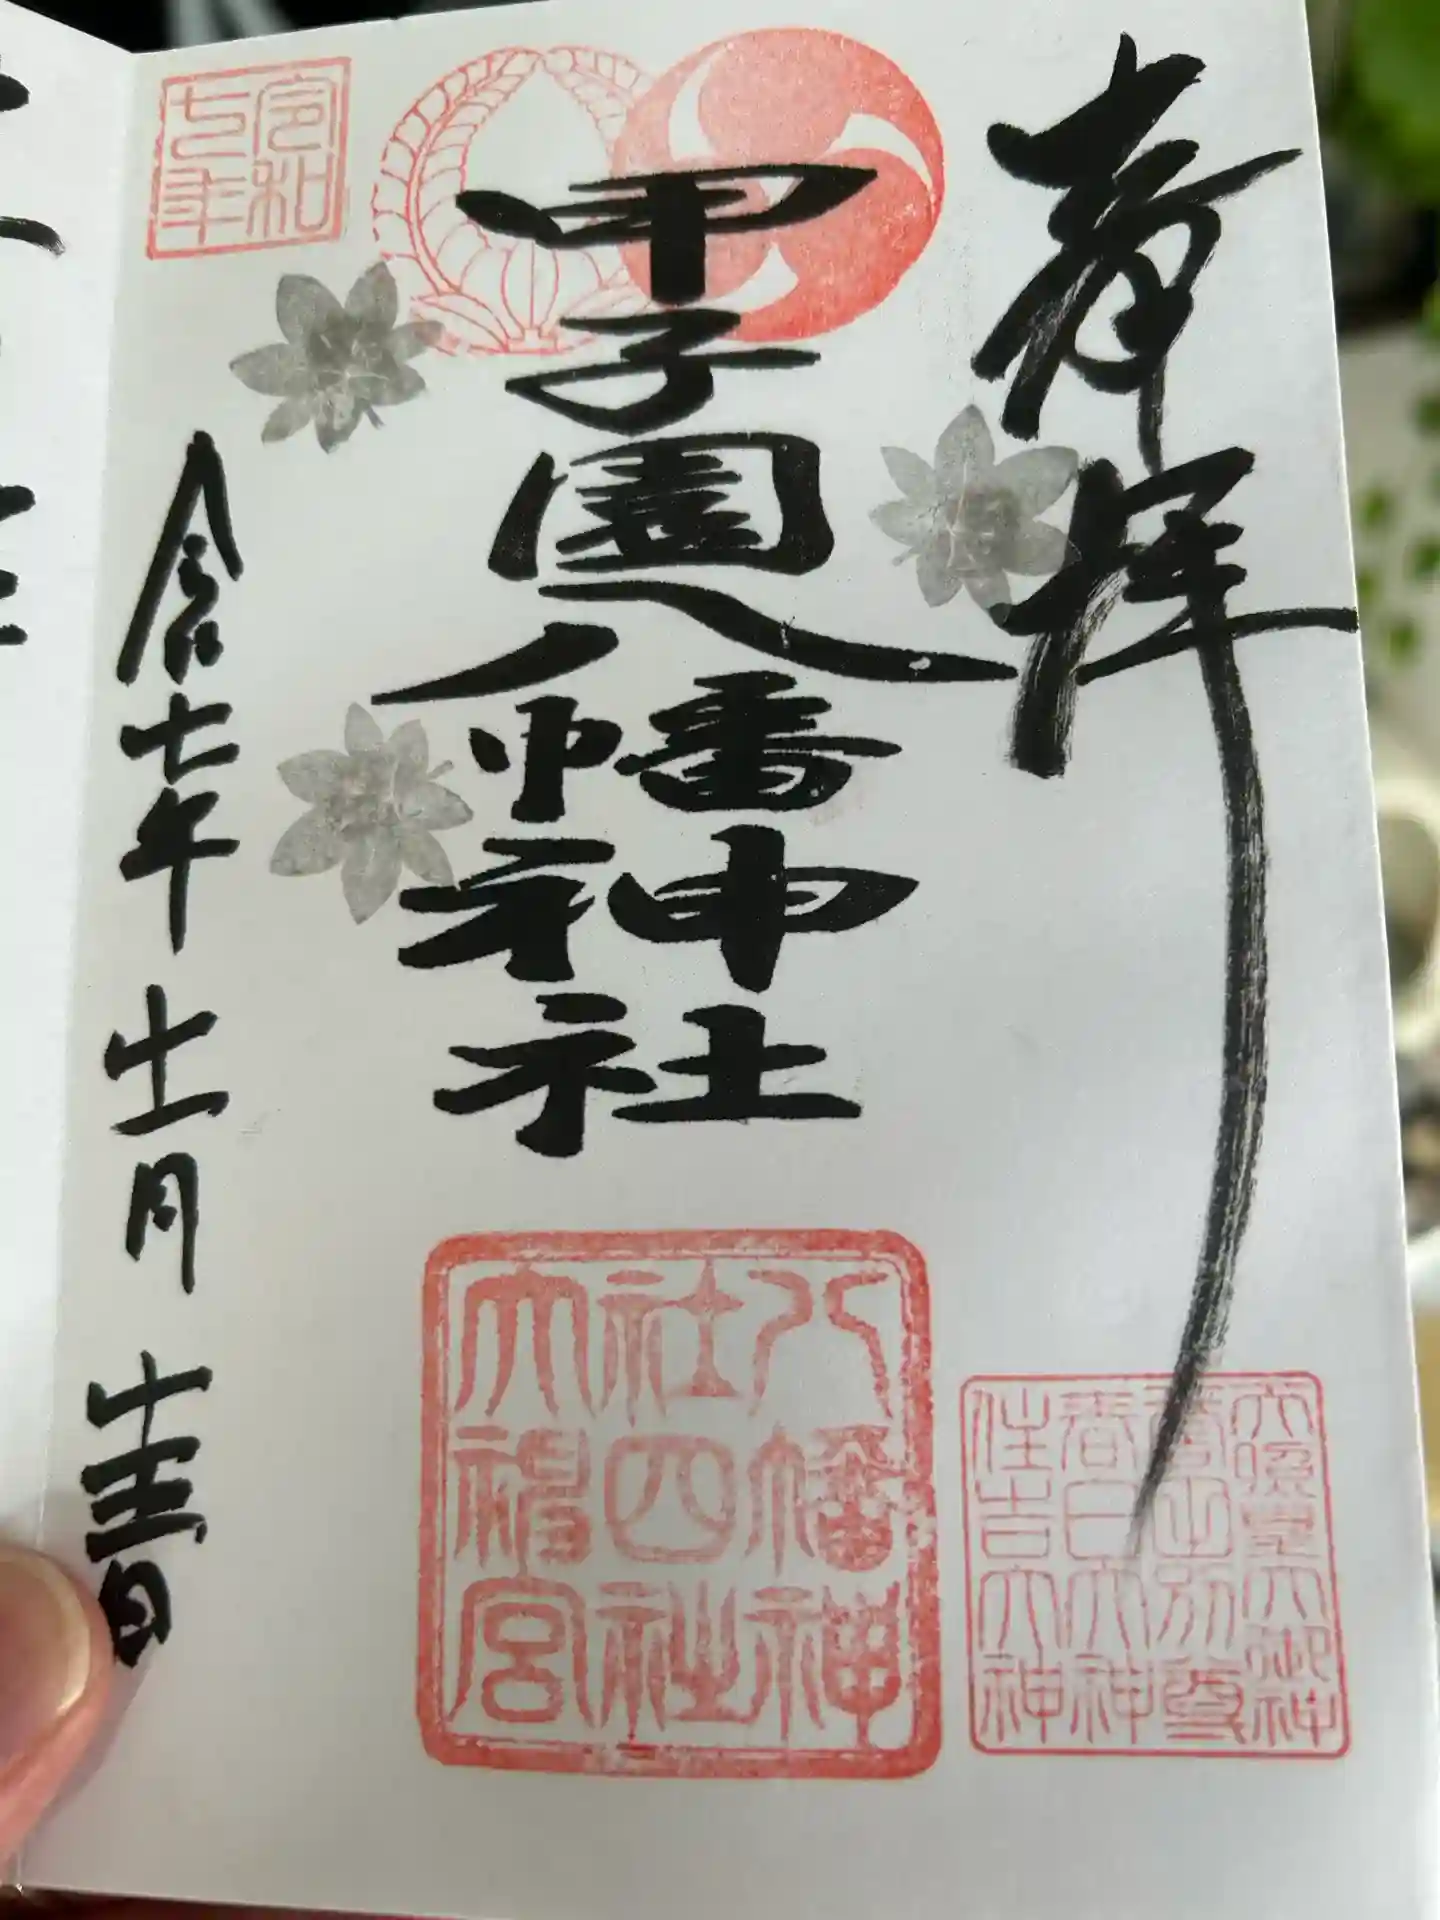 奉拝
甲子園八幡神社
令和七年
令和七年十一月日
八幡神
社四社
大神宮
天照皇大御神
誉田別尊
春日大神
住吉大神